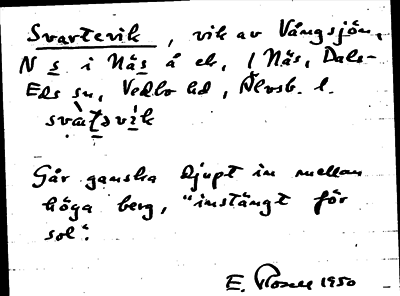 Svartevik, vik av Vångsjön,
N s i Näs å ek, (Näs, Dals-
Eds sn, Vedbo hd, Älvsb. l.
svàtəvìk
Går ganska djupt in mellan
höga berg, "instängt för
sol".
E. 1950